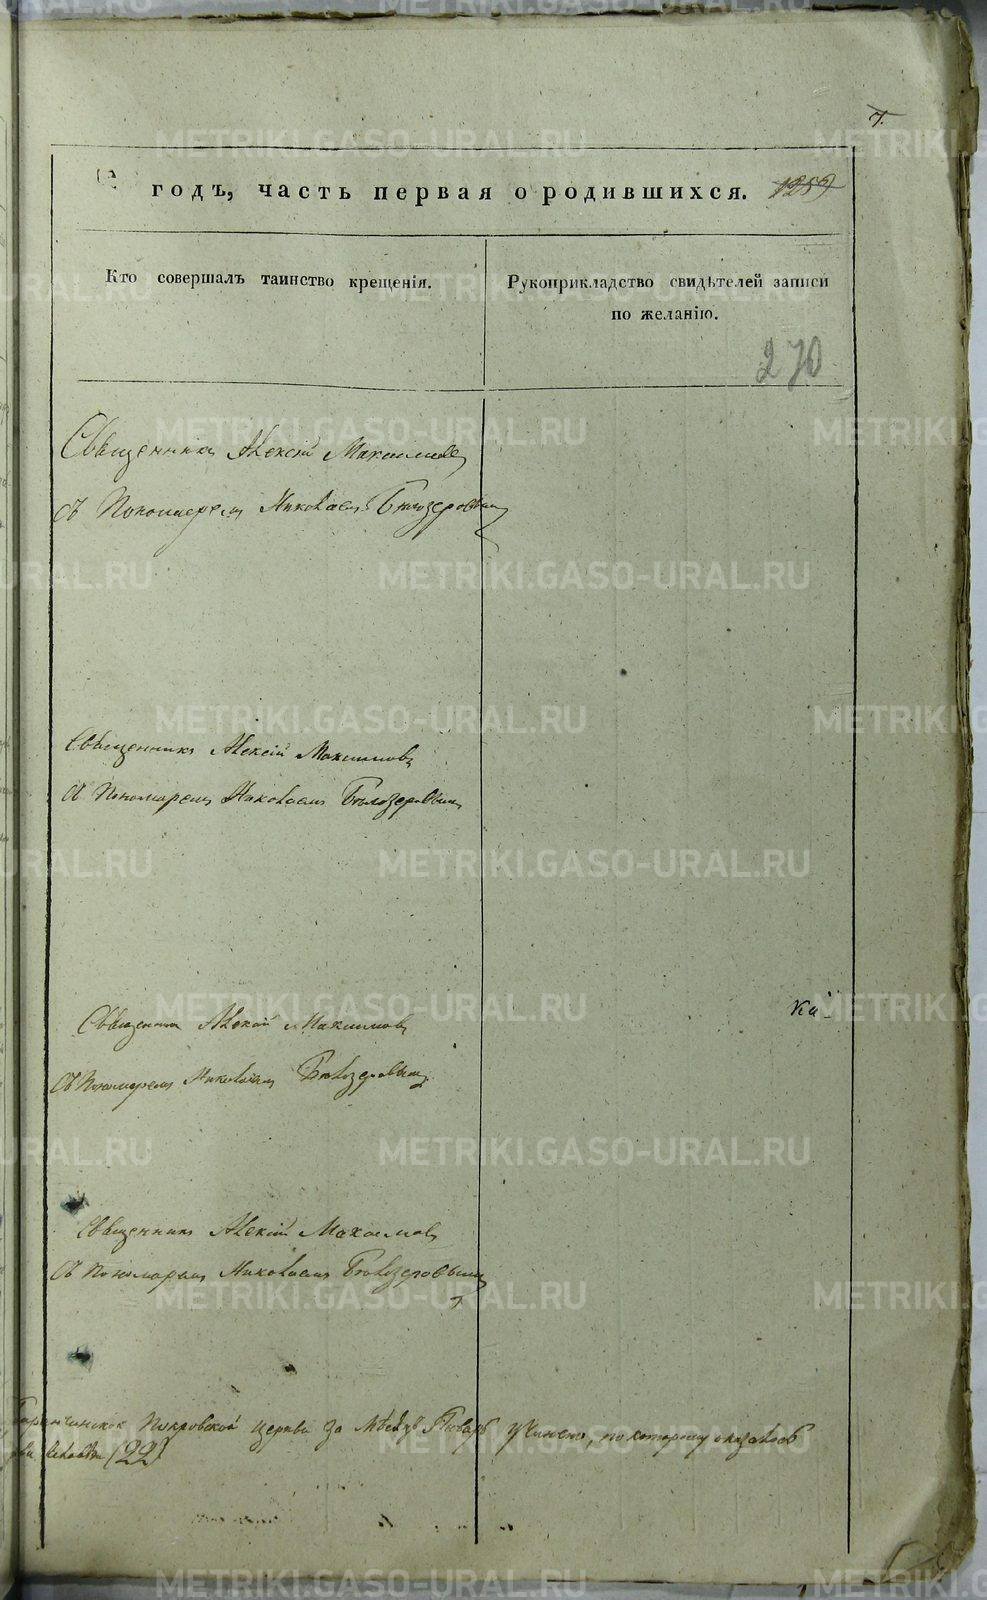 7.
годъ, часть первая о родившихся. 1259
Кто совершалъ таинство крещенія.
Рукоприкладство свидѣтелей записи
по желанію.
270
Священникъ Алексій Максимовъ
съ Пономаремъ Николаемъ Бѣлозеровымъ
Священникъ Алексій Максимовъ
съ Пономаремъ Николаемъ Бѣлозеровымъ
Священникъ Алексій Максимовъ
Ка
съ Пономаремъ Николаемъ Бѣлозеровымъ
Священникъ Алексій Максимовъ
съ Пономаремъ Николаемъ Бѣлозеровымъ
Покровской церкви за Мѣсяцъ Генварь учинено, по которому оказалось
человѣкъ (22)
METRIKI.GASO-URAL.RU